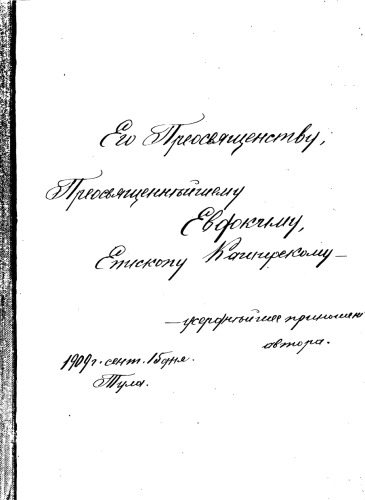 Его Преосвященству,
Преосвященнѣйшему
Евдокиму,
Епископу Каширскому —
— усерднѣйшее приношен
автора.
1909 г. сент. 15 дня.
Тула.